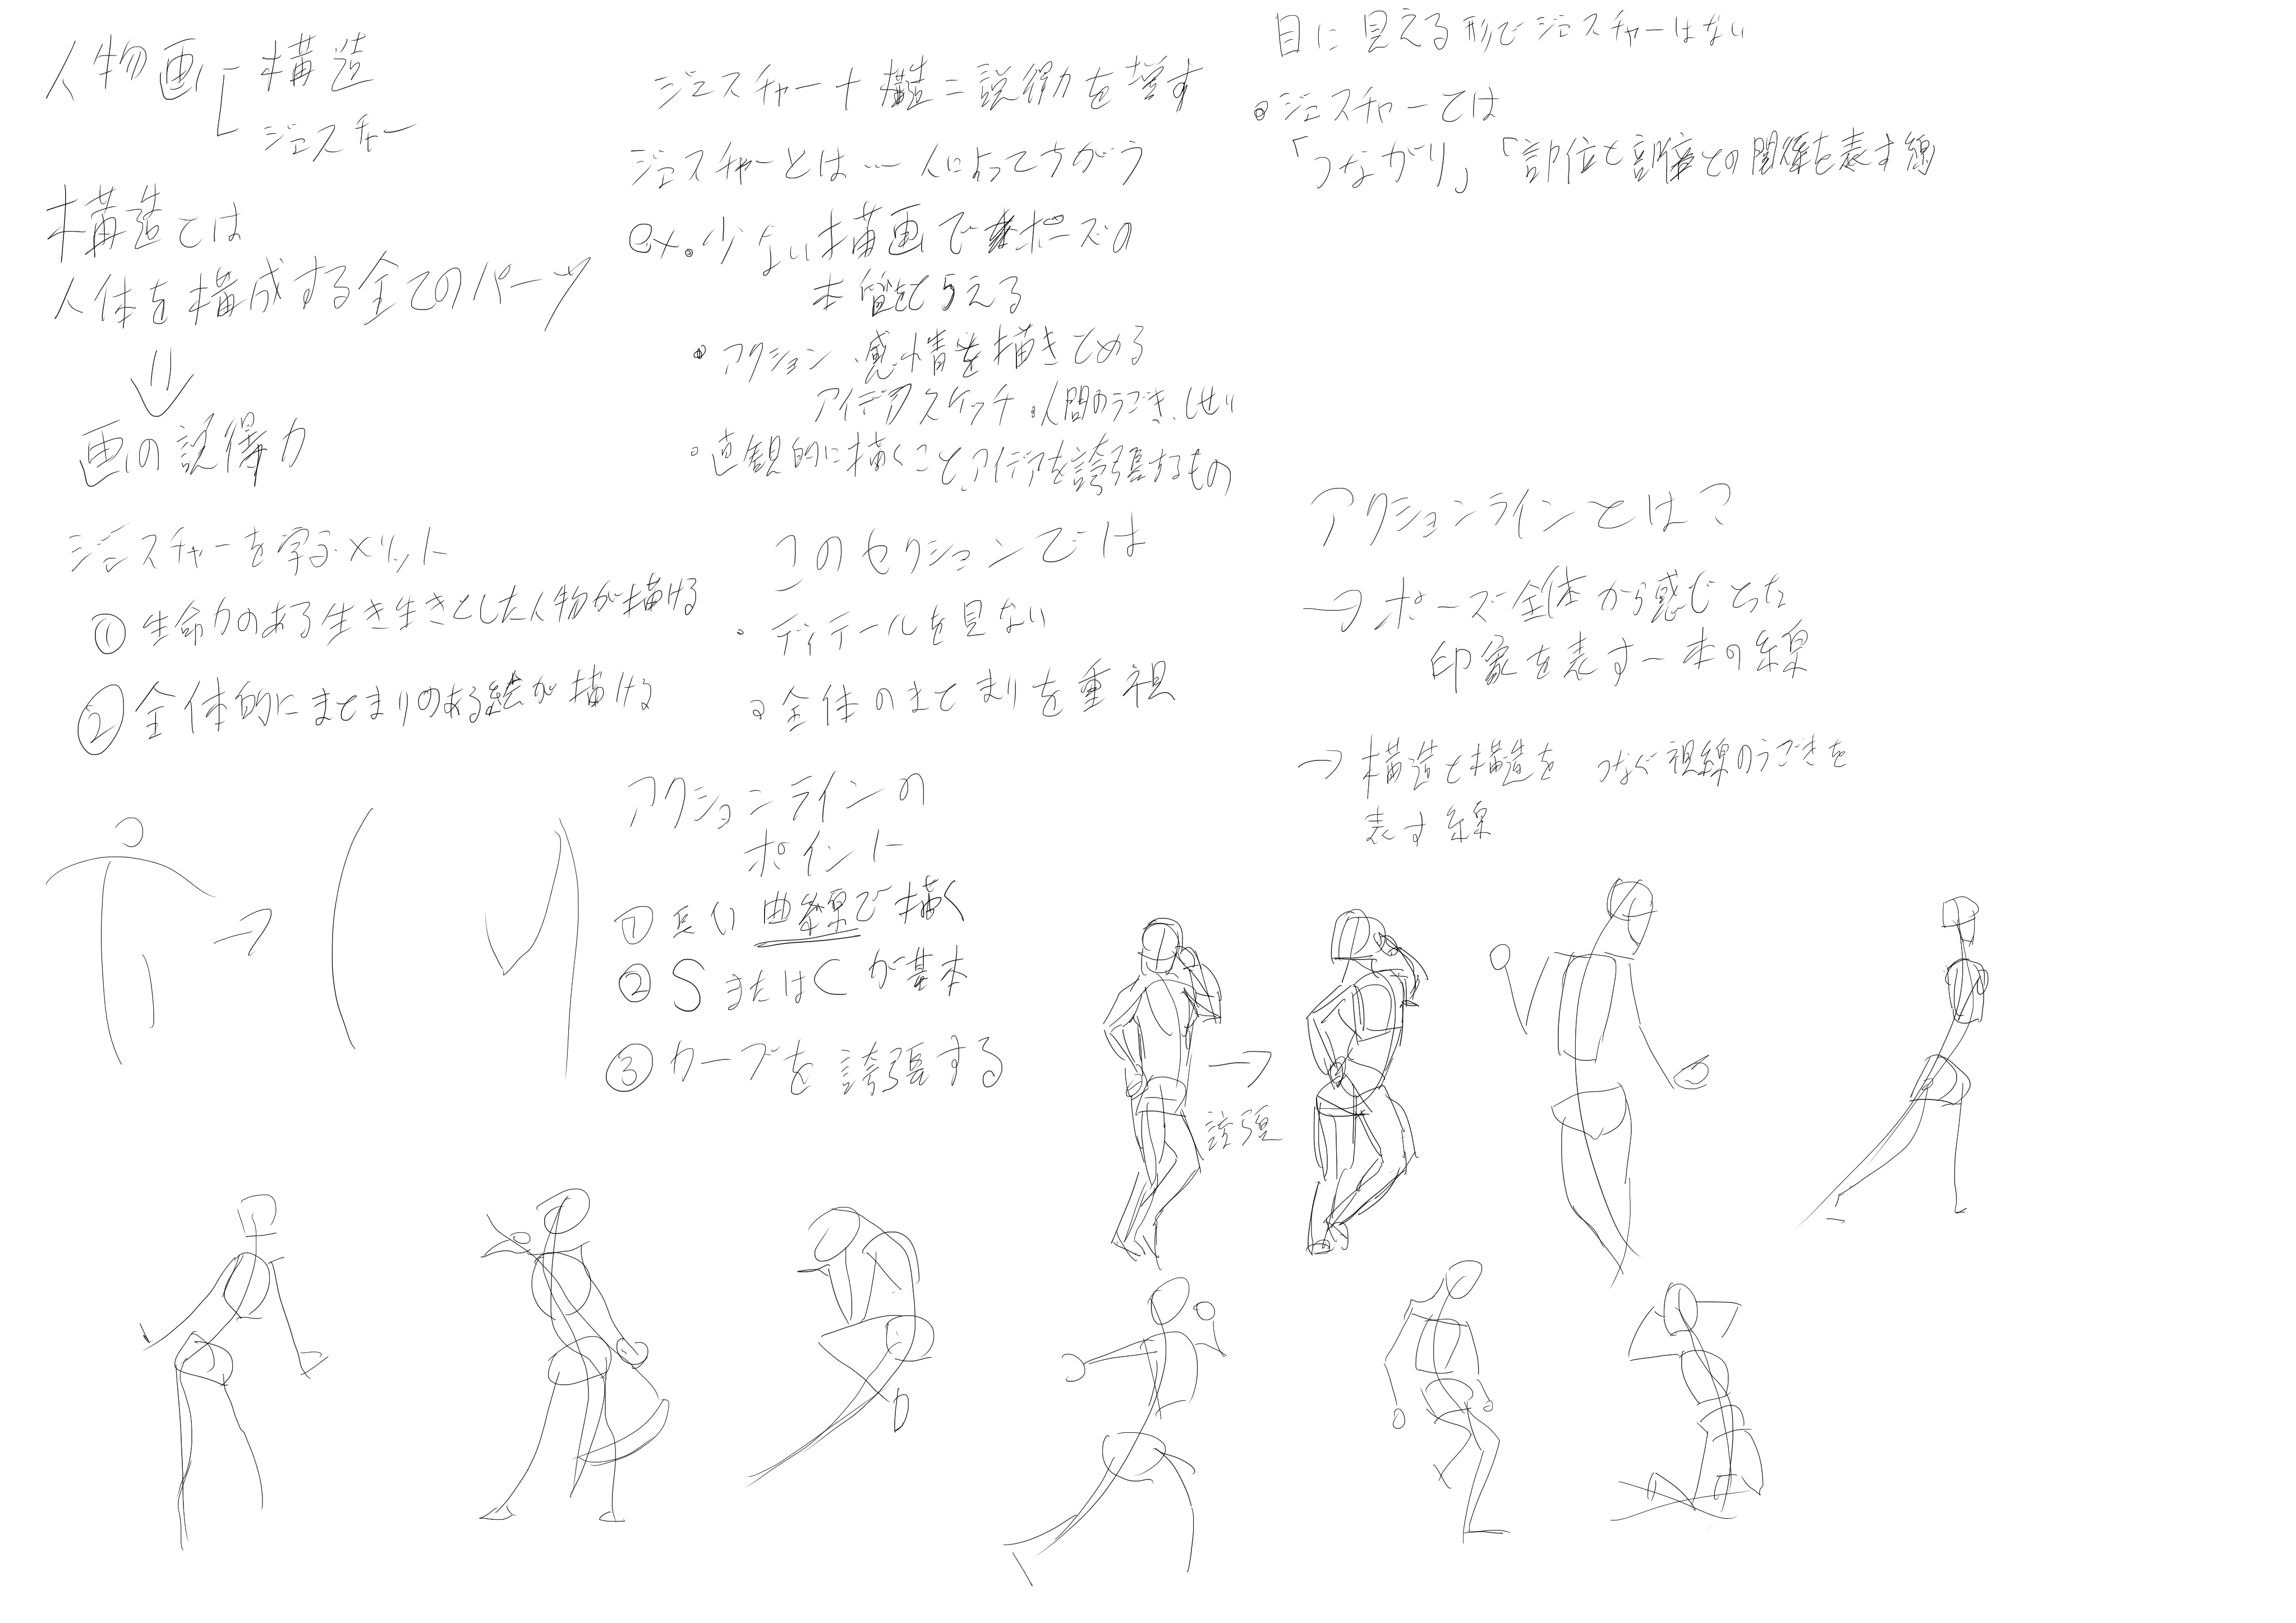 人物画 構造
ジェスチャー
構造とは
人体を構成する全てのパーツ
画の説得力
ジェスチャーを学ぶメリット
① 生命力のある生き生きとした人物が描ける
② 全体的にまとまりのある絵が描ける
ジェスチャー + 構造 = 説得力を増す
ジェスチャーとは … 人によってちがう
ex. 少ない描画でポーズの
本質を与える
・アクション、感情を描きとめる
アイデアスケッチ・人間のうごき、しせい
・直観的に描くこと、アイデアを誇張するもの
このセクションでは
・ディテールを見ない
・全体のまとまりを重視
アクションラインの
ポイント
① 長い曲線で描く
② SまたはCが基本
③ カーブを誇張する
目に見える形でジェスチャーはない
・ジェスチャーとは
「つながり」「部位と部位との関係を表す線
アクションラインとは?
→ ポーズ全体から感じとった
印象を表す一本の線
→ 構造と構造を つなぐ視線のうごきを
表す線
→
誇張